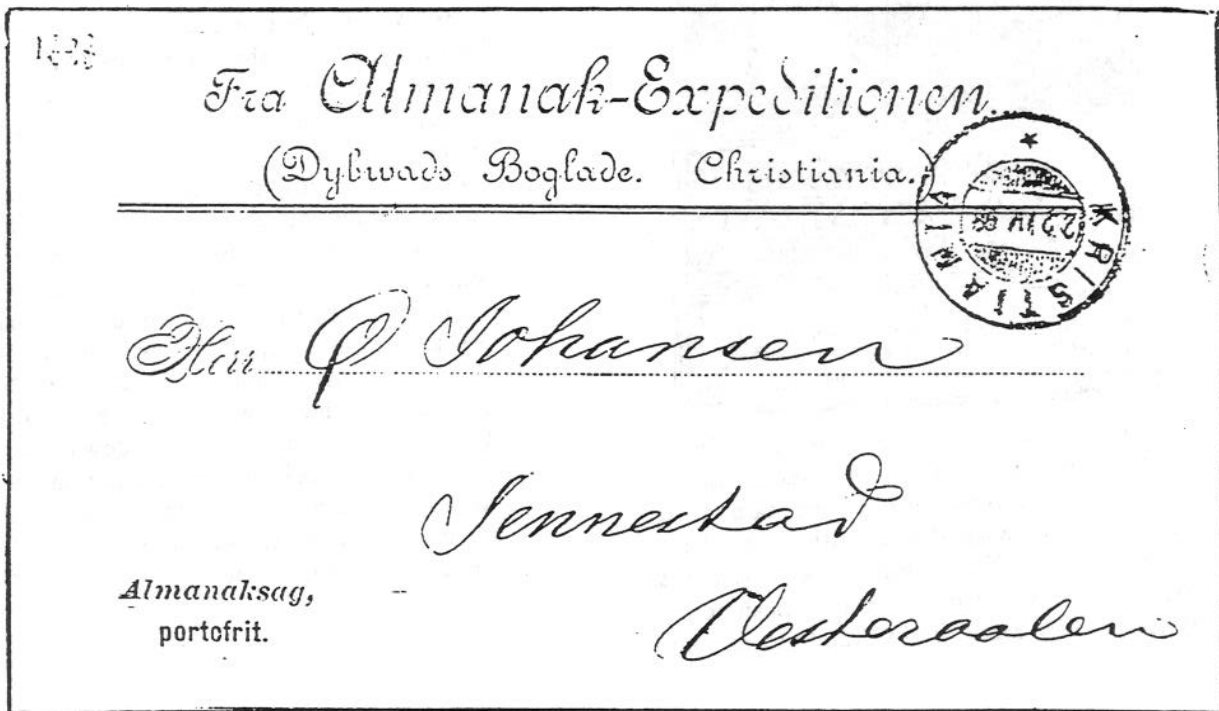 Fra Almanak-Expeditionen.
(Dybwads Boglade. Christiania.)
KRISTIANIA
Herr Ø Johansen
Jennestad
Vesteraalen
Almanaksag,
portofrit.